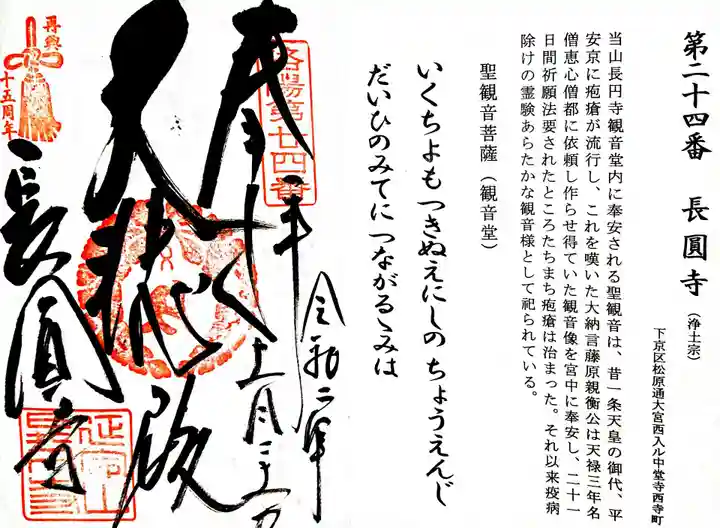 第二十四番 長圓寺(浄土宗)
下京区松原通大宮西入ル中堂寺西寺町
当山長円寺観音堂内に奉安される聖観音は、昔一条天皇の御代、平
安京に疱瘡が流行し、これを嘆いた大納言藤原親衡公は天禄三年名
僧恵心僧都に依頼し作らせ得ていた観音像を宮中に奉安し、二十一
日間祈願法要されたところたちまち疱瘡は治まった。それ以来疫病
除けの霊験あらたかな観音様として祀られている。
聖観音菩薩(観音堂)
いくちよも つきぬえにしの ちょうえんじ
だいひのみてに つながるゝみは
令和二年
十一月二十
奉拝
洛陽第廿四番
大悲殿
長圓寺
再興
十五周年